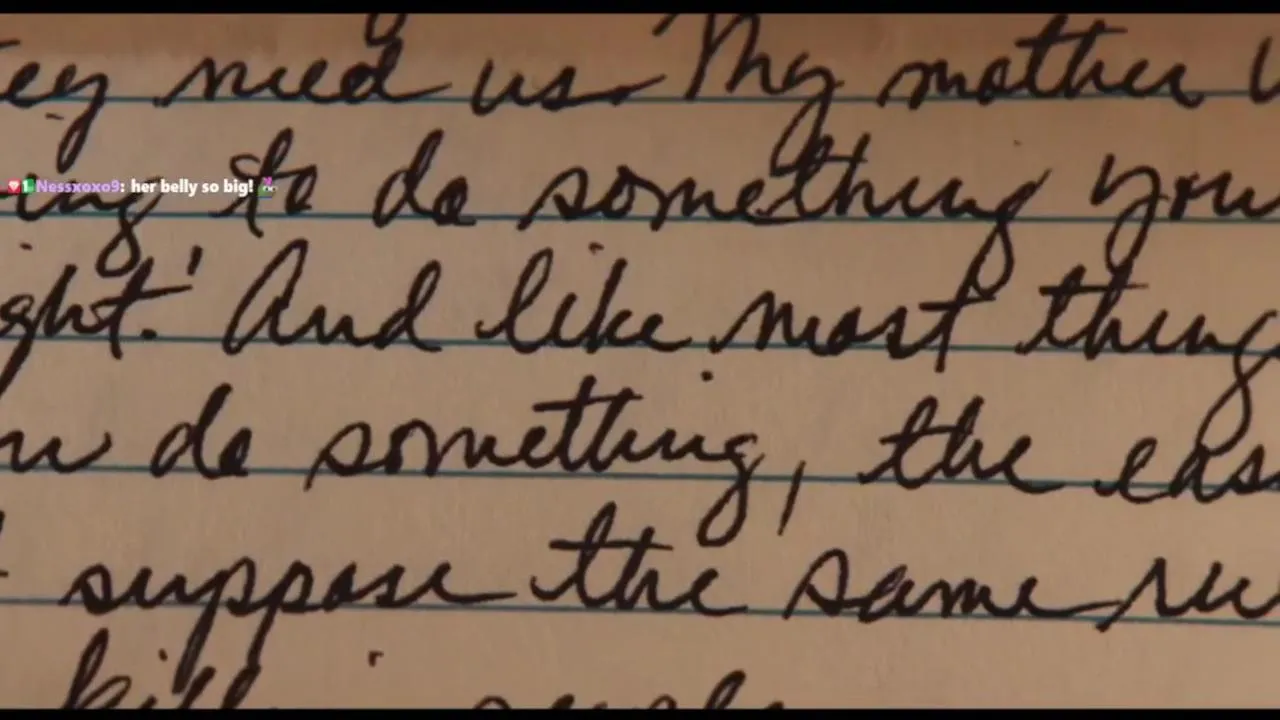 need us. My mother
Nessxoxo9: her belly so big!
to do something you
ght.' And like most thing
do something, the eas
suppose the same ru
killing people